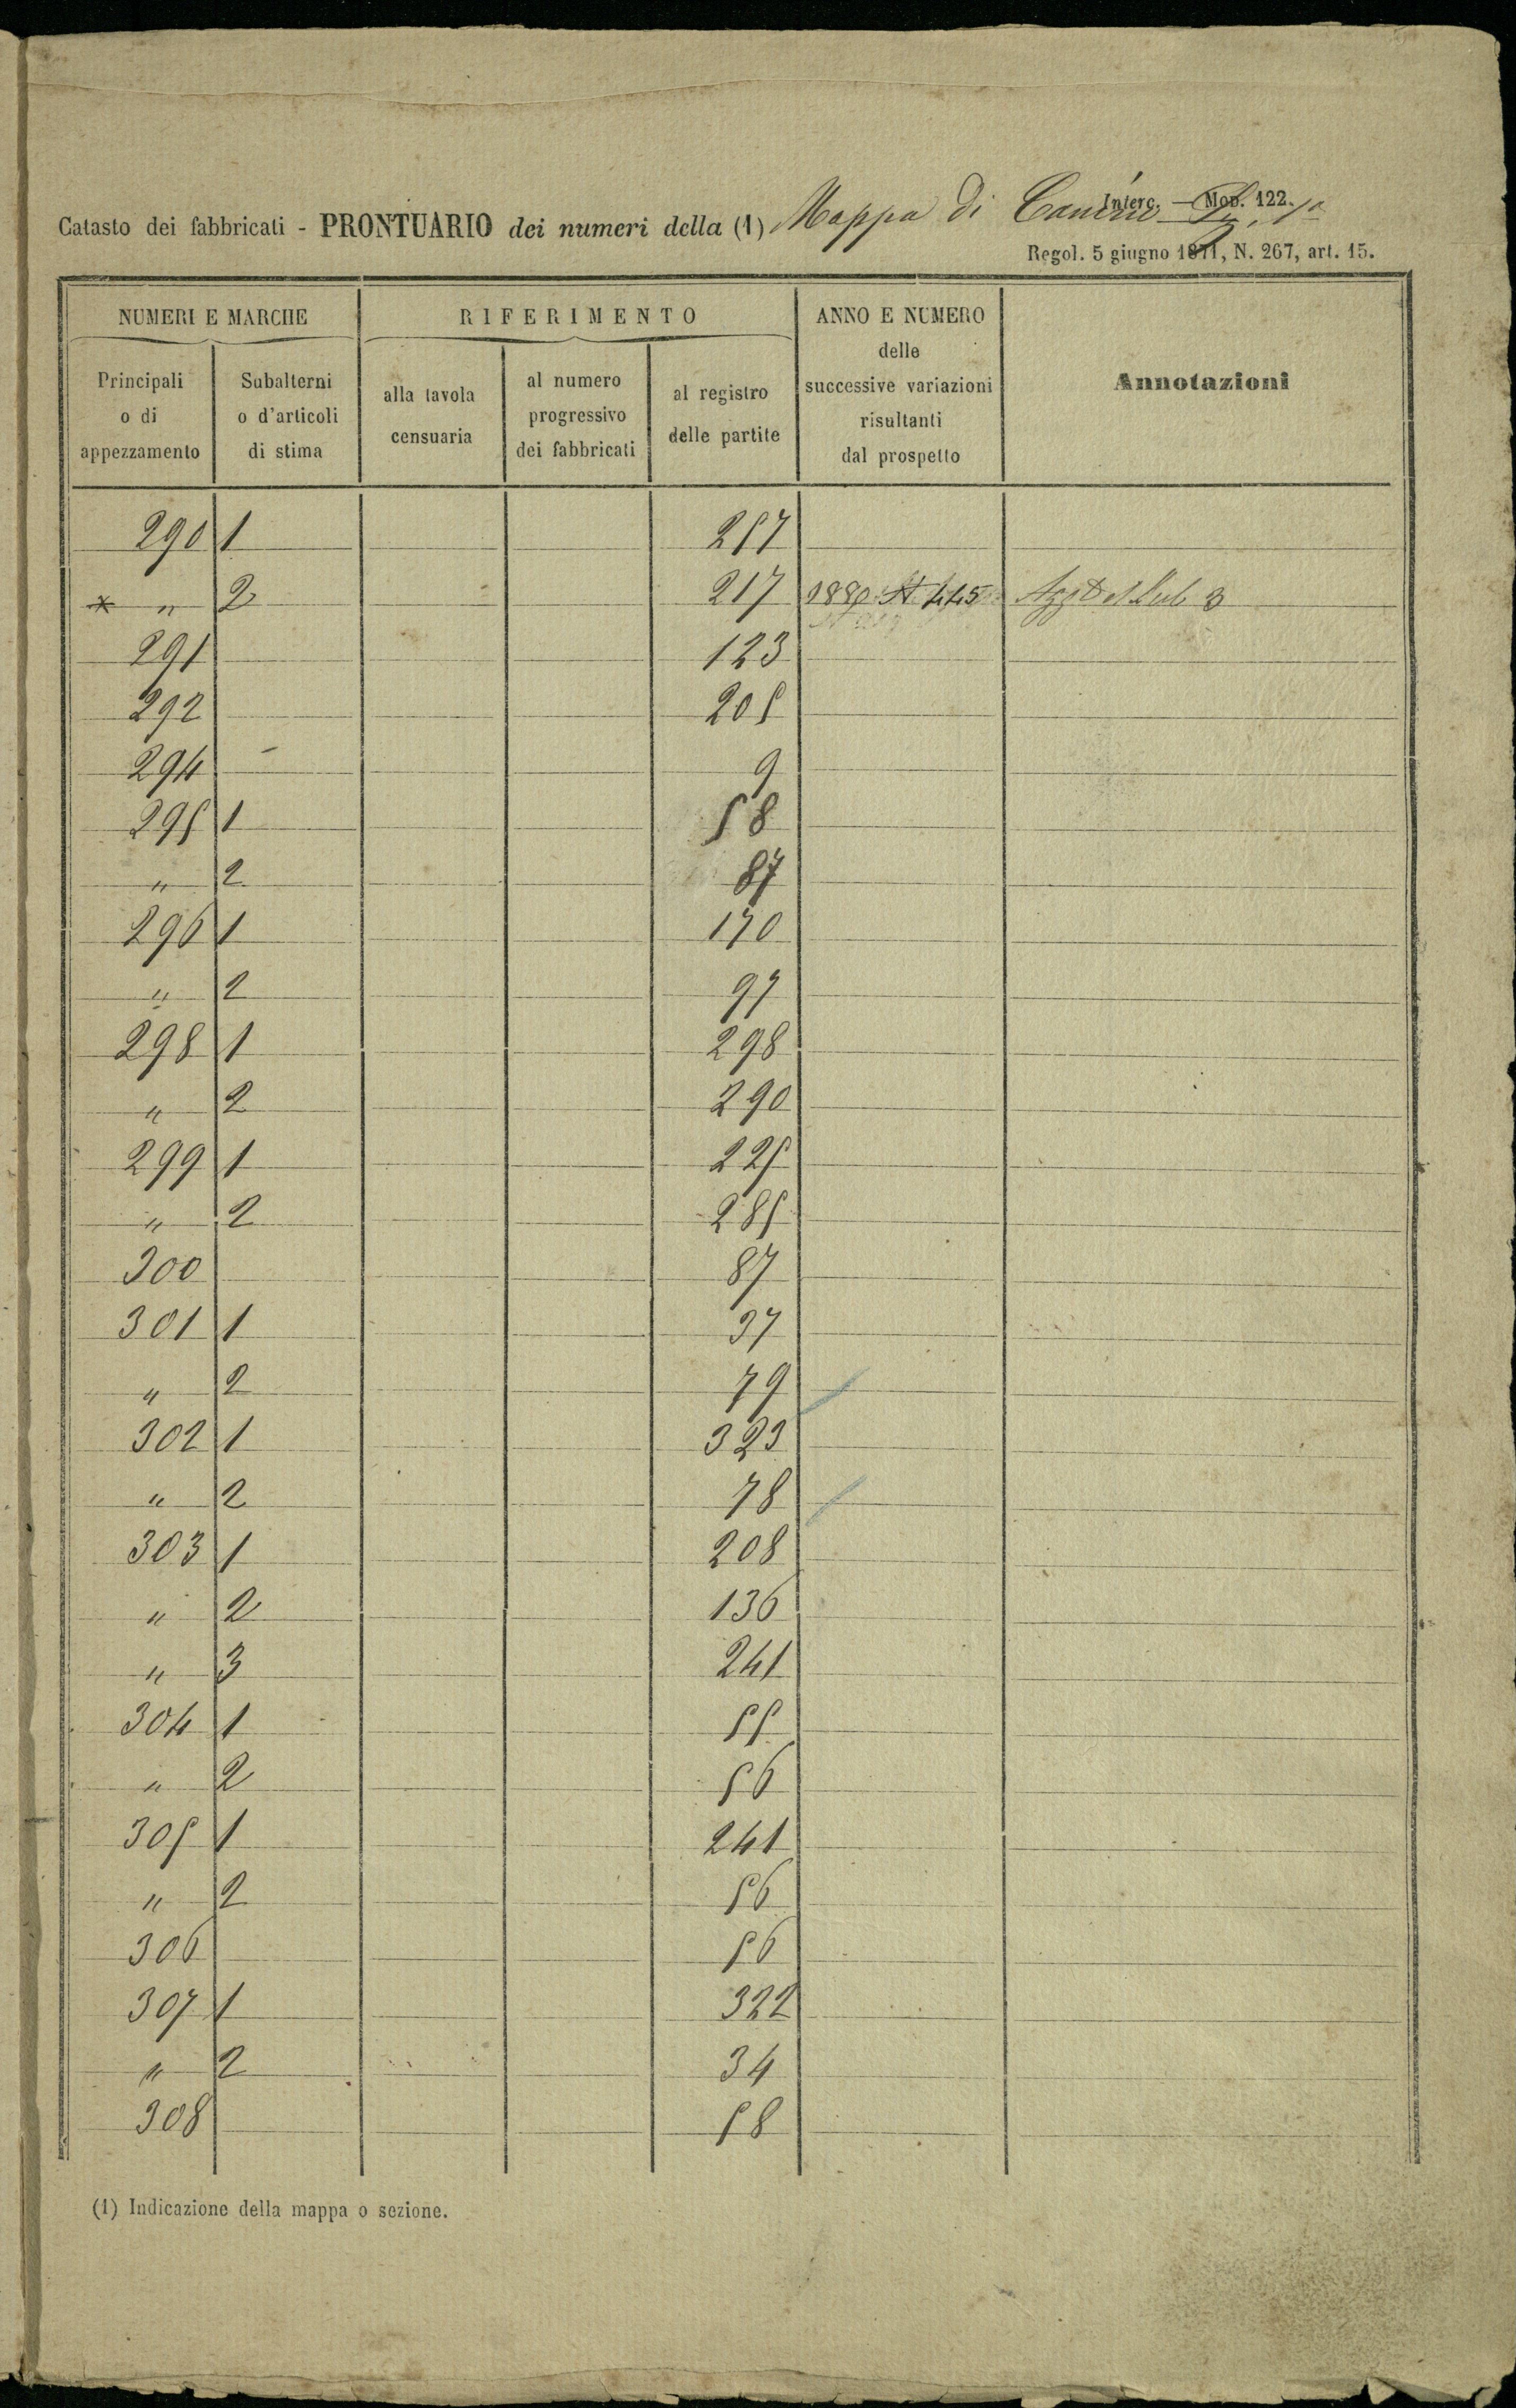 Interc. — Mod. 122.
Catasto dei fabbricati - PRONTUARIO dei numeri della (1) Mappa di
Regol. 5 giugno 1871, N. 267, art. 15.
NUMERI E MARCHE RIFERIMENTO ANNO E NUMERO delle successive variazioni risultanti dal prospetto Annotazioni
Principali o di appezzamento Subalterni o d'articoli di stima alla tavola censuaria al numero progressivo dei fabbricati al registro delle partite
290 1 257
x " 2 217 445 Sub 3
291 123
292 205
294 - 9
295 1 58
" 2 87
296 1 170
" 2 97
298 1 298
" 2 290
299 1 225
" 2 285
300 87
301 1 37
" 2 79
302 1 323
" 2 78
303 1 208
" 2 136
" 3 241
304 1 55
" 2 56
305 1 241
" 2 56
306 56
307 1 322
" 2 34
308 58
(1) Indicazione della mappa o sezione.